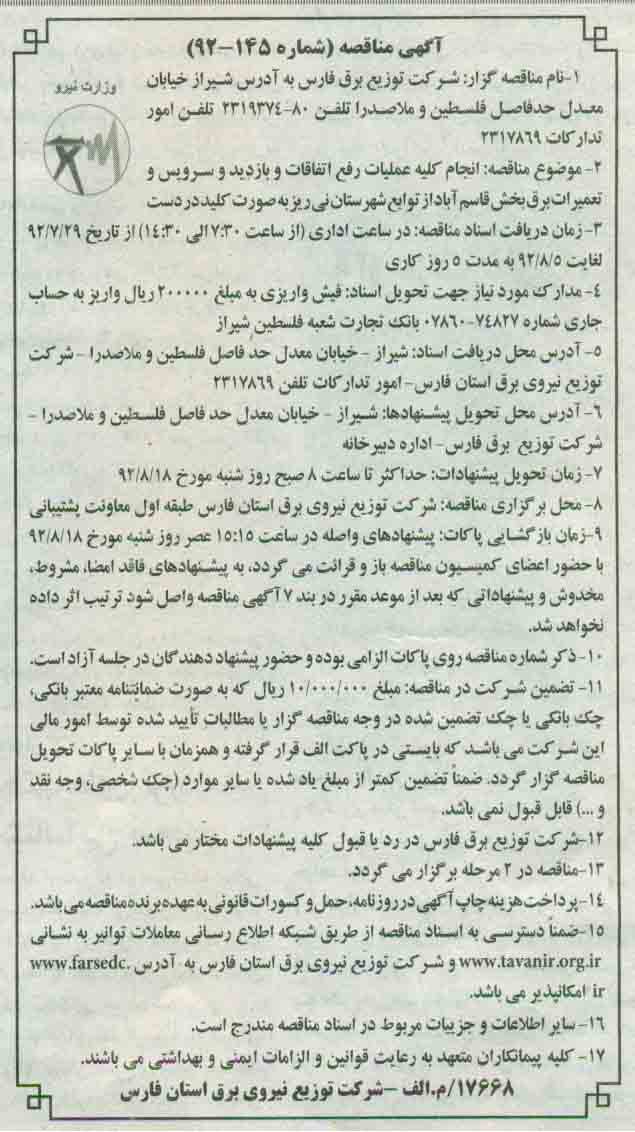 آگهی مناقصه (شماره ۱۴۵-۹۲)
وزارت نیرو
۱-نام مناقصه گزار: شرکت توزیع برق فارس به آدرس شیراز خیابان
معدل حدفاصل فلسطین و ملاصدرا تلفن ۸۰-۲۳۱۹۳۷۴ تلفن امور
تدارکات ۲۳۱۷۸۶۹
۲- موضوع مناقصه: انجام کلیه عملیات رفع اتفاقات و بازدید و سرویس و
تعمیرات برق بخش قاسم آباد از توابع شهرستان نی ریز به صورت کلید در دست
۳- زمان دریافت اسناد مناقصه: در ساعت اداری (از ساعت ۷:۳۰ الی ۱۴:۳۰) از تاریخ ۹۲/۷/۲۹
لغایت ۹۲/۸/۵ به مدت ۵ روز کاری
۴- مدارک مورد نیاز جهت تحویل اسناد: فیش واریزی به مبلغ ۲۰۰۰۰۰ ریال واریز به حساب
جاری شماره ۷۴۸۲۷-۰۷۸۶۰ بانک تجارت شعبه فلسطین شیراز
۵- آدرس محل دریافت اسناد: شیراز - خیابان معدل حد فاصل فلسطین و ملاصدرا - شرکت
توزیع نیروی برق استان فارس- امور تدارکات تلفن ۲۳۱۷۸۶۹
۶- آدرس محل تحویل پیشنهادها: شیراز - خیابان معدل حد فاصل فلسطین و ملاصدرا -
شرکت توزیع برق فارس- اداره دبیرخانه
۷- زمان تحویل پیشنهادات: حداکثر تا ساعت ۸ صبح روز شنبه مورخ ۹۲/۸/۱۸
۸- محل برگزاری مناقصه: شرکت توزیع نیروی برق استان فارس طبقه اول معاونت پشتیبانی
۹-زمان بازگشایی پاکات: پیشنهادهای واصله در ساعت ۱۵:۱۵ عصر روز شنبه مورخ ۹۲/۸/۱۸
با حضور اعضای کمیسیون مناقصه باز و قرائت می گردد، به پیشنهادهای فاقد امضا، مشروط،
مخدوش و پیشنهاداتی که بعد از موعد مقرر در بند ۷ آگهی مناقصه واصل شود ترتیب اثر داده
نخواهد شد.
۱۰- ذکر شماره مناقصه روی پاکات الزامی بوده و حضور پیشنهاد دهندگان در جلسه آزاد است.
۱۱- تضمین شرکت در مناقصه: مبلغ ۱۰/۰۰۰/۰۰۰ ریال که به صورت ضمانتنامه معتبر بانکی،
چک بانکی یا چک تضمین شده در وجه مناقصه گزار یا مطالبات تأیید شده توسط امور مالی
این شرکت می باشد که بایستی در پاکت الف قرار گرفته و همزمان با سایر پاکات تحویل
مناقصه گزار گردد. ضمناً تضمین کمتر از مبلغ یاد شده یا سایر موارد (چک شخصی، وجه نقد
و ...) قابل قبول نمی باشد.
۱۲-شرکت توزیع برق فارس در رد یا قبول کلیه پیشنهادات مختار می باشد.
۱۳-مناقصه در ۲ مرحله برگزار می گردد.
۱۴-پرداخت هزینه چاپ آگهی در روزنامه، حمل و کسورات قانونی به عهده برنده مناقصه می باشد.
۱۵-ضمناً دسترسی به اسناد مناقصه از طریق شبکه اطلاع رسانی معاملات توانیر به نشانی
www.tavanir.org.ir و شرکت توزیع نیروی برق استان فارس به آدرس www.farsedc.
ir امکانپذیر می باشد.
۱۶- سایر اطلاعات و جزییات مربوط در اسناد مناقصه مندرج است.
۱۷- کلیه پیمانکاران متعهد به رعایت قوانین و الزامات ایمنی و بهداشتی می باشند.
۱۷۶۶۸/م.الف -شرکت توزیع نیروی برق استان فارس